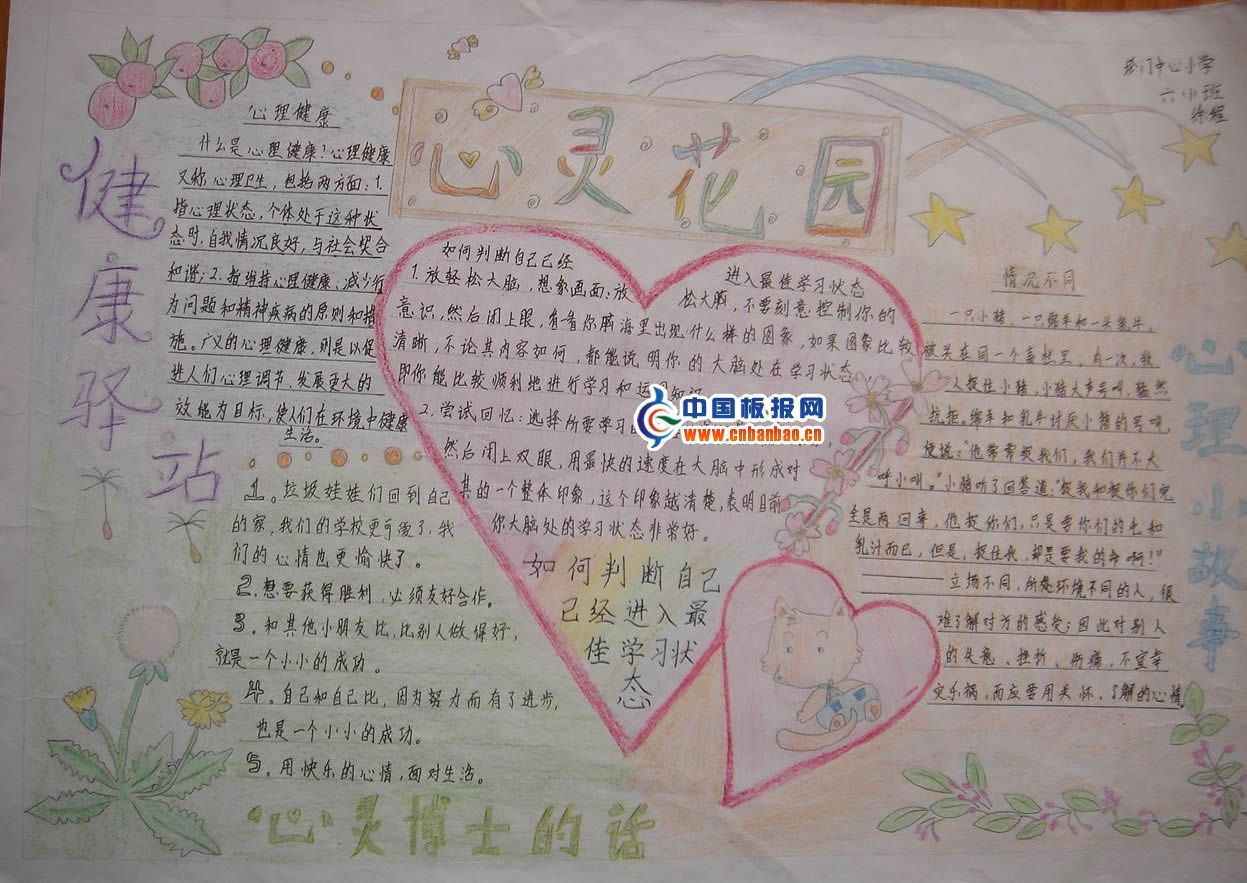 心灵花园
中心小学
六小班
健康驿站
心理健康
什么是心理健康？心理健康
又称心理卫生，包括两方面：1.
指心理状态，个体处于这种状
态时，自我情况良好，与社会契合
和谐；2.指维持心理健康，减少行
为问题和精神疾病的原则和措
施。广义的心理健康，则是以促
进人们心理调节、发展更大的
效能为目标，使人们在环境中健康
生活。
如何判断自己已经
进入最佳学习状态
1.放轻松大脑，想象画面：放松大脑，不要刻意控制你的
意识，然后闭上眼，看看你脑海里出现什么样的图象，如果图象比较
清晰，不论其内容如何，都能说明你的大脑处在学习状态
即你能比较顺利地进行学习和运用知识
2.尝试回忆：选择所要学习
然后闭上双眼，用最快的速度在大脑中形成对
其的一个整体印象，这个印象越清楚，表明目前
你大脑处的学习状态非常好。
如何判断自己
已经进入最
佳学习状
态
中国板报网
www.cnbanbao.cn
1。垃圾娃娃们回到自己
的家，我们的学校更可爱了，我
们的心情也更愉快了。
2.想要获得胜利，必须友好合作。
3。和其他小朋友比，比别人做得好，
就是一个小小的成功。
4。自己和自己比，因为努力而有了进步，
也是一个小小的成功。
5。用快乐的心情，面对生活。
心灵博士的话
心理小故事
情况不同
一只小猪、一只绵羊和一头乳牛，
被关在同一个畜栏里。有一次，牧
人捉住小猪，小猪大声号叫，猛然
抗拒。绵羊和乳牛讨厌小猪的号叫，
便说："他常常捉我们，我们并不大
呼小叫。"小猪听了回答道："捉我和捉你们完
全是两回事，他捉你们，只是要你们的毛和
乳汁而已，但是，捉住我，却是要我的命啊！"
——立场不同，所处环境不同的人，很
难了解对方的感受；因此对别人
的失意、挫折、伤痛，不宜幸
灾乐祸，而应要用关怀、了解的心情